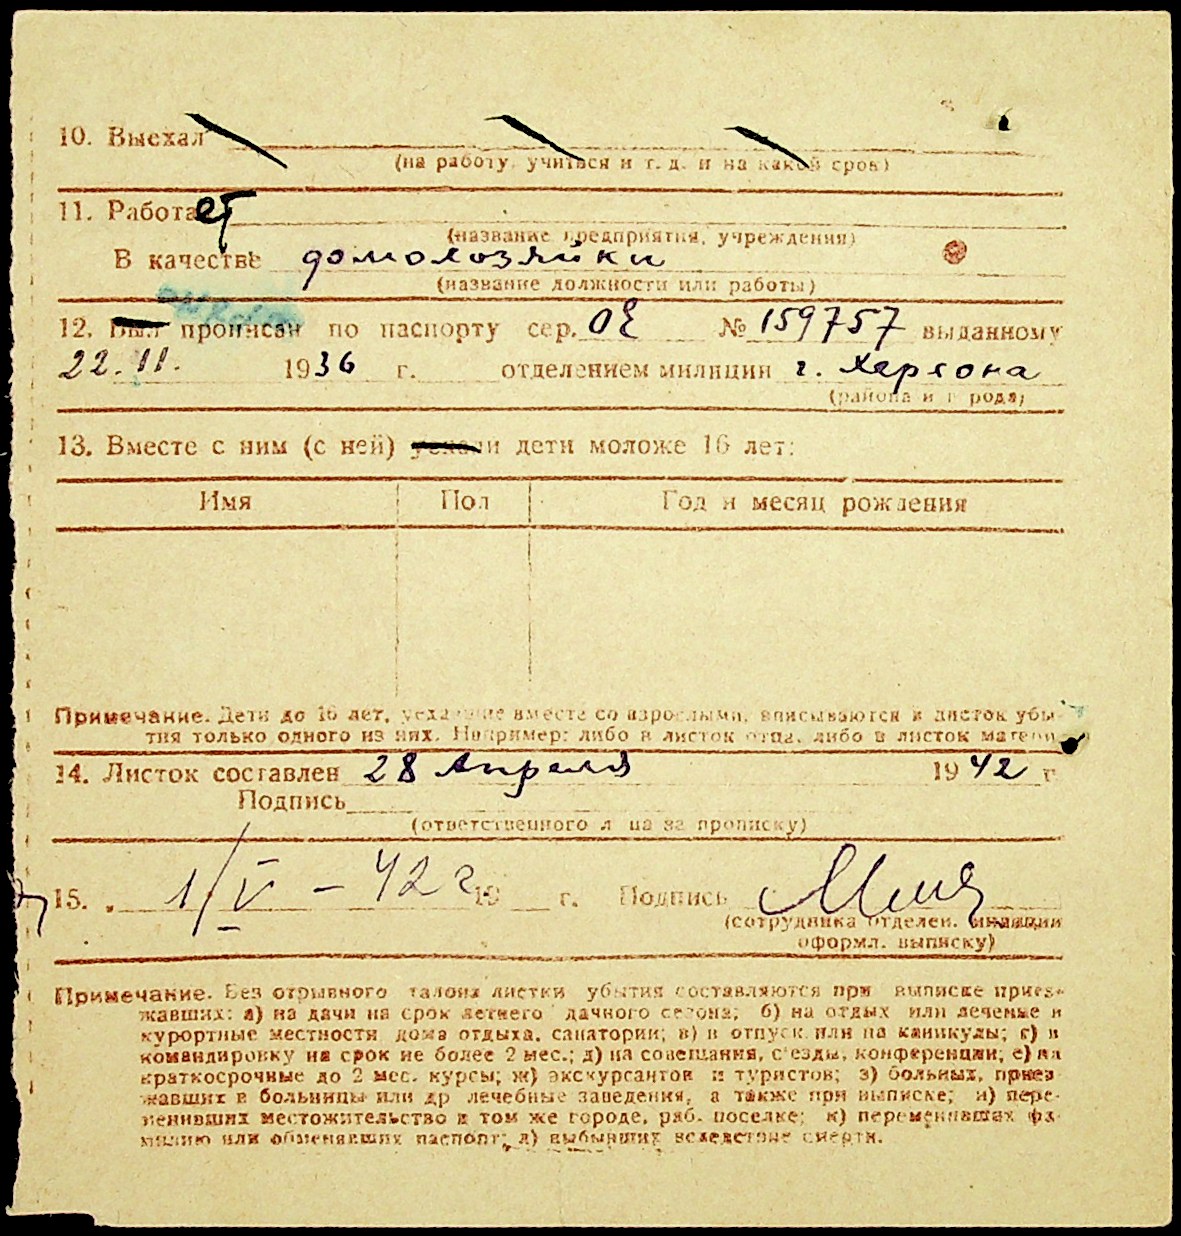 10. Выехал
(на работу, учиться и т. д. и на какой срок)
11. Работает
(название предприятия, учреждения)
В качестве домохозяйки
(название должности или работы)
12. Был прописан по паспорту сер. ОЕ № 159757 выданному
22.11. 1936 г. отделением милиции г. Херсона
(района и города)
13. Вместе с ним (с ней) уехали дети моложе 16 лет:
Имя Пол Год и месяц рождения
Примечание. Дети до 16 лет, уехавшие вместе со взрослыми, вписываются в листок убы-
тия только одного из них. Например: либо в листок отца, либо в листок матери
14. Листок составлен 28 Апреля 1942 г.
Подпись
(ответственного лица за прописку)
15. 1/V – 42 г. 19 г. Подпись
(сотрудника отделен. милиции
оформл. выписку)
Примечание. Без отрывного талона листки убытия составляются при выписке приез-
жавших: а) на дачи на срок летнего дачного сезона; б) на отдых или лечение в
курортные местности дома отдыха, санатории; в) в отпуск или на каникулы; г) в
командировку на срок не более 2 мес.; д) на совещания, с'езды, конференции; е) на
краткосрочные до 2 мес. курсы; ж) экскурсантов и туристов; з) больных, приез-
жавших в больницы или др лечебные заведения, а также при выписке; и) пере-
менивших местожительство в том же городе, раб. поселке; к) переменивших фа-
милию или обменявших паспорт; л) выбывших вследствие смерти.